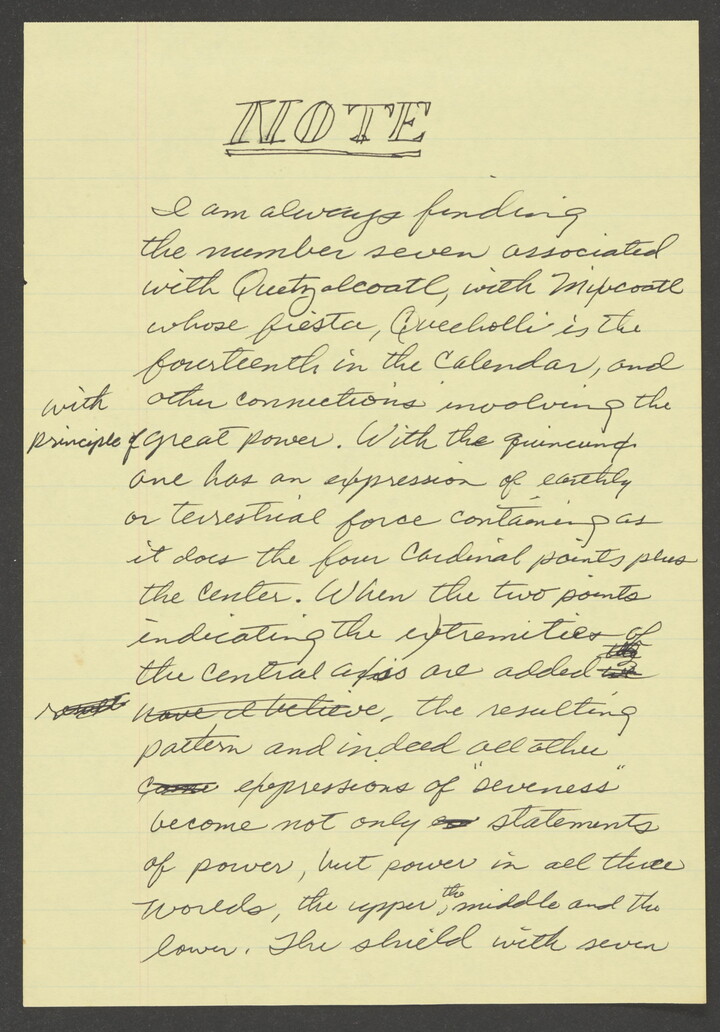 NOTE
I am always finding
the number seven associated
with Quetzalcoatl, with Mixcoatl
whose fiesta, Quecholli is the
fourteenth in the calendar, and
other connections involving the
with
principle of great power. With the quincunx
one has an expression of earthly
or terrestrial force containing as
it does the four cardinal points plus
the center. When the two points
indicating the extremities of
the central axis are added
have I believe, the resulting
pattern and indeed all other
expressions of "seveness"
become not only statements
of power, but power in all three
worlds, the upper, the middle and the
lower. The shield with seven